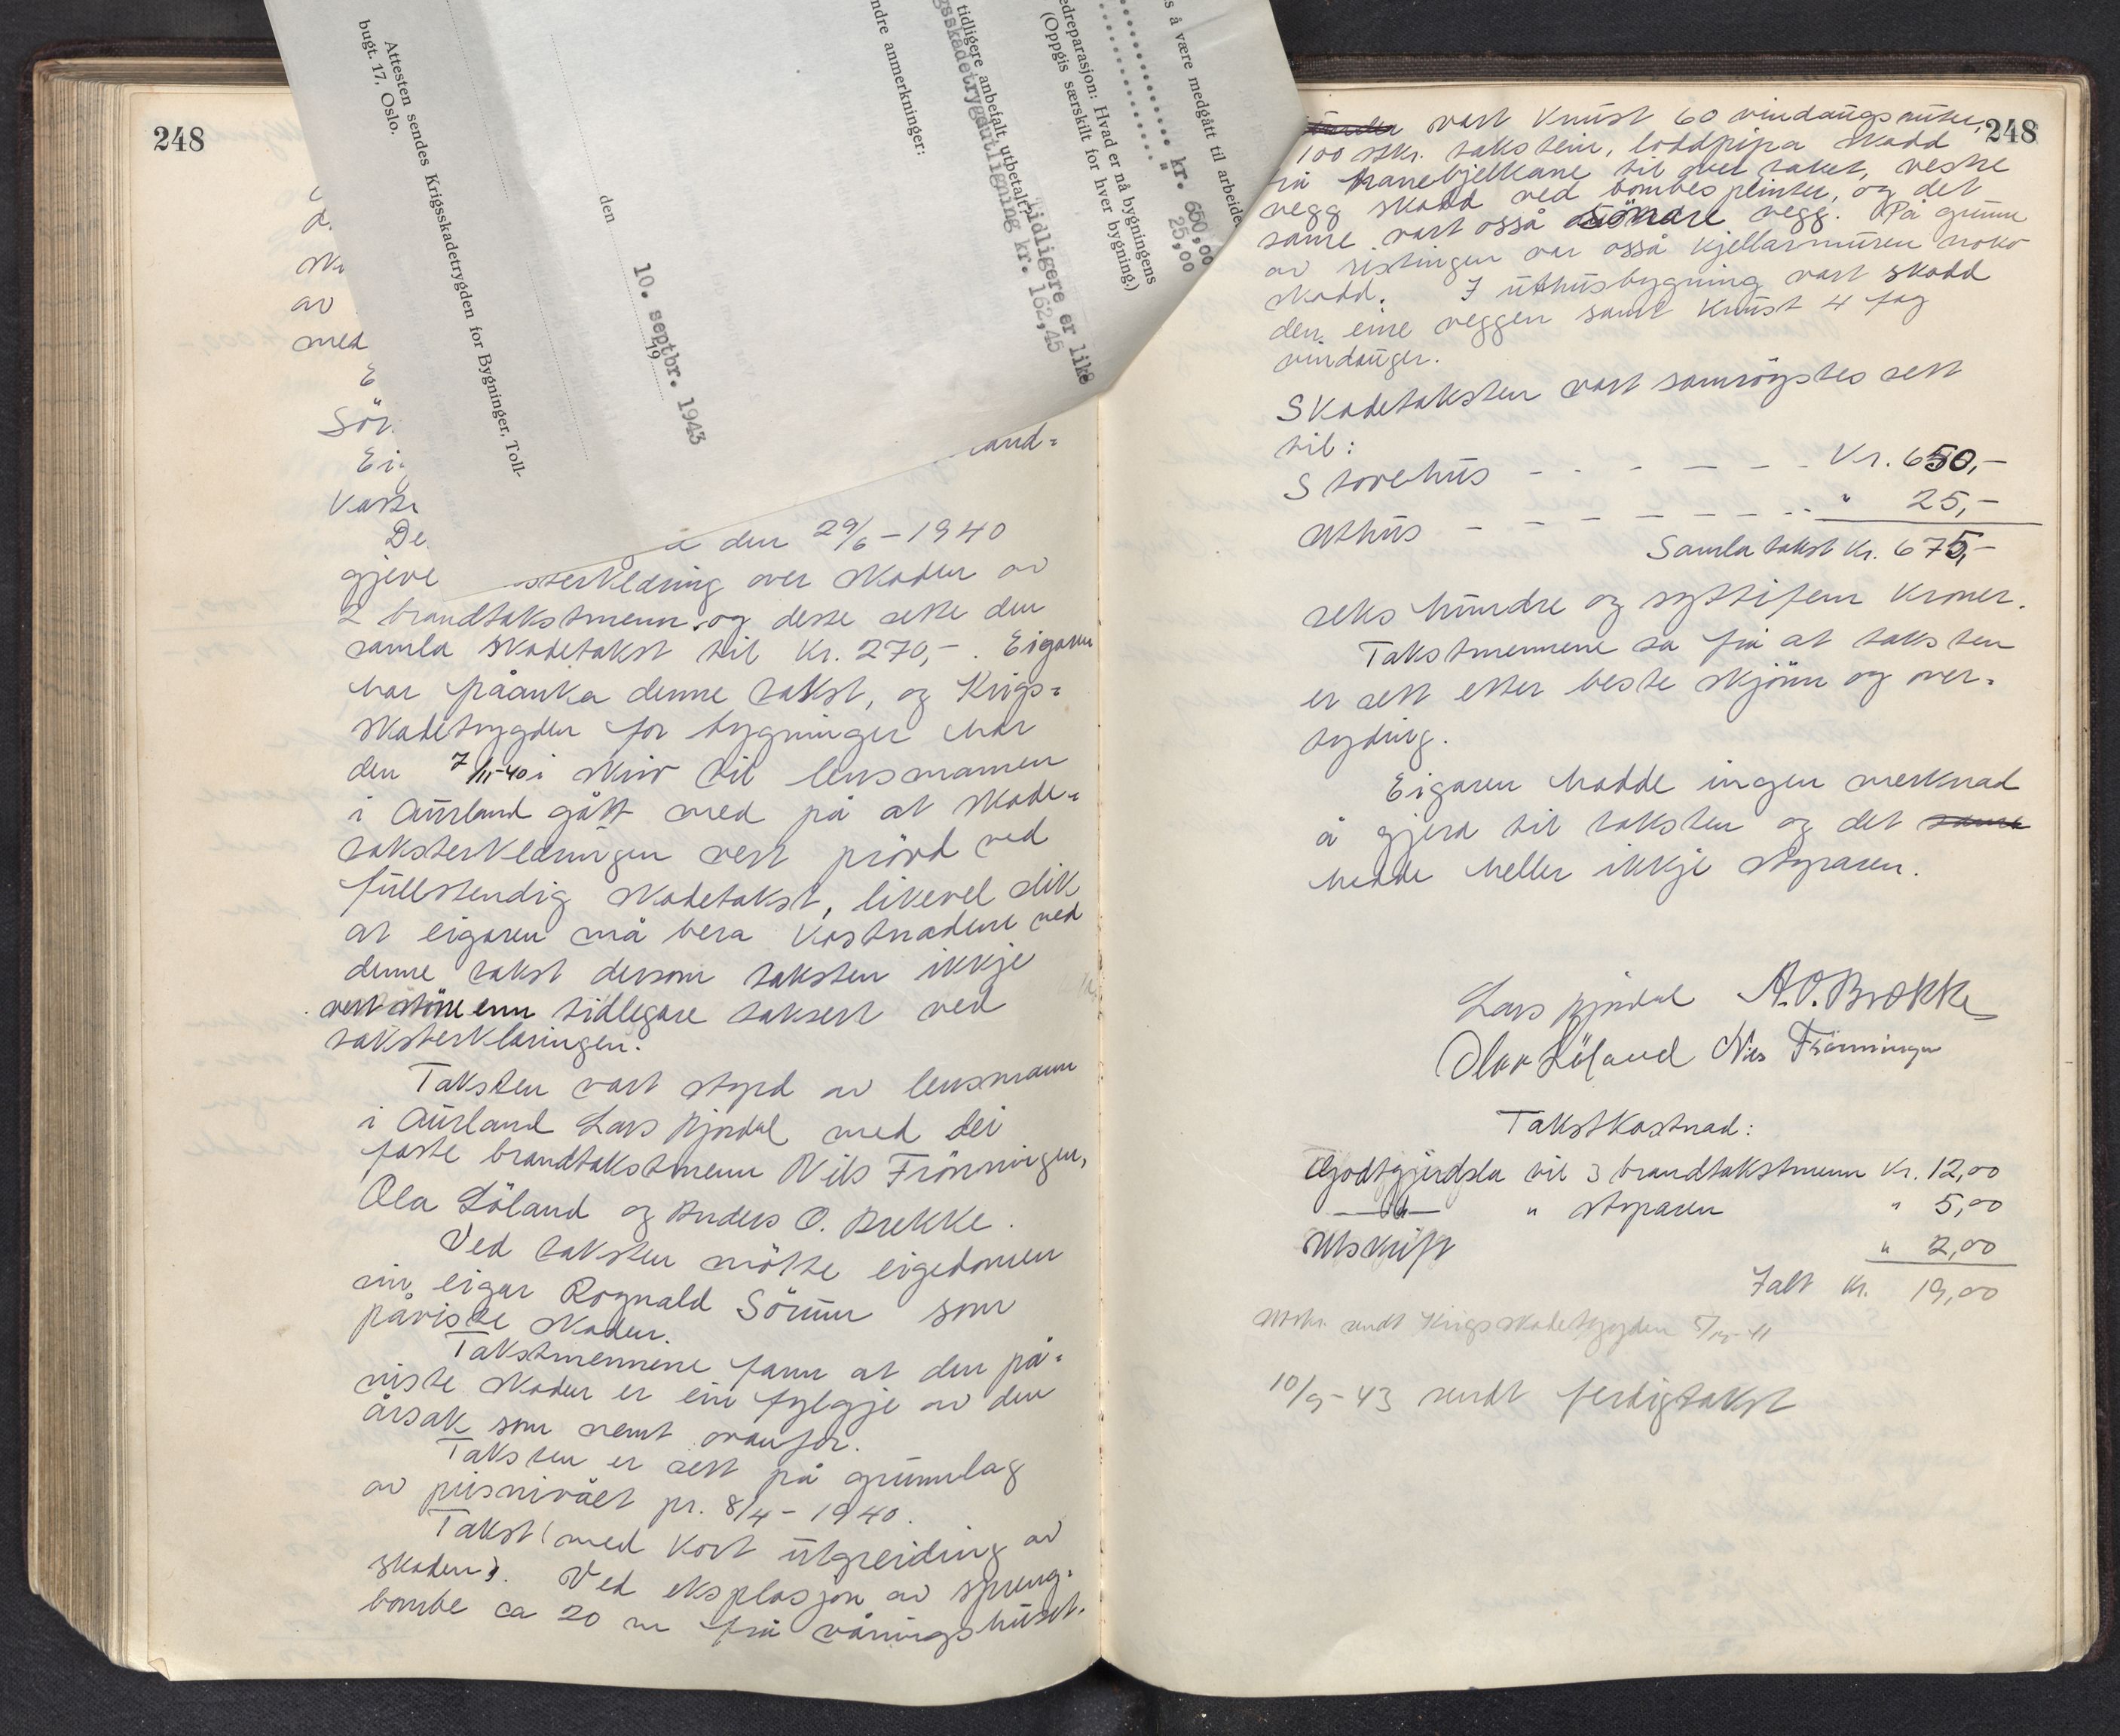 248
av
med
E
Sör
Ei
De
and-
den 29/6-1940
gjeve sterklæring over skaden av
2 brandtakstmenn, og desse sette den
samla skadetakst til Kr. 270,-. Eigaren
har påanka denne takst, og Krigs-
skadetrygden for bygninger har
den 7/11-40 i skriv til lensmannen
i Aurland gått med på at skade-
taksterklæringen vert prövd ved
fullstendig skadetakst, likevel slik
at eigaren må bera kostnadene ved
denne takst dersom taksten ikkje
vert större enn tidlegare taksert ved
taksterklæringen.
Taksten vart styrd av lensmann
i Aurland Lars Bjørdal med dei
faste brandtakstmenn Nils Frönningen,
Ola Löland og Anders O. Brekke.
Ved taksten mötte eigedomen
sin eigar Rognald Sörum som
påviste skaden.
Takstmennene fann at den på-
viste skaden er ein fylgje av den
årsak som nemt ovanfor.
Taksten er sett på grunnlag
av prisnivået pr. 8/4-1940.
Takst (med kort utgreiding av
skaden). Ved eksplosjon av spreng-
bombe ca 20 m frå våningshuset
Attesten sendes Krigsskadetrygden for Bygninger, Toll-
bugt. 17, Oslo.
den 10. septbr. 1943
19
ndre anmerkninger:
tidligere anbefalt utbetalt: Tidligere er like
gsskadetrygdutligning kr. 162,45
edreparasjon: Hvad er nå bygningens
(Oppgis særskilt for hver bygning.)
kr. 650,00
" 25,00
s å være medgått til arbeide
248
vart knust 60 vindaugsruter,
100 stkr. takstein, loddpipa skadd
frå hanebjelkane til over taket, vestre
vegg skadd ved bombesplinter, og det
same vart osså söndre vegg. På grunn
av ristingen var osså kjellarmuren noko
skadd. I uthusbygning vart skadd
den eine veggen samt knust 4 fag
vindauger.
Skadetaksten vart samröystes sett
til:
Stovehus - - - - - - Kr. 650,-
Uthus - - - - - - - " 25,-
Samla takst Kr. 675,-
seks hundre og syttifem kroner.
Takstmennene sa frå at taksten
er sett etter beste skjönn og over-
tyding.
Eigaren hadde ingen merknad
å gjera til taksten og det same
hadde heller ikkje styraren.
Lars Bjørdal A.O. Brekke
Olav Löland Nils Frönningen
Takstkostnad:
Godtgjerdsla til 3 brandtakstmenn Kr. 12,00
" " styraren " 5,00
Utskrift " 2,00
Ialt Kr. 19,00
Utskr. sendt Krigsskadetrygden
10/9-43 sendt ferdigtakst